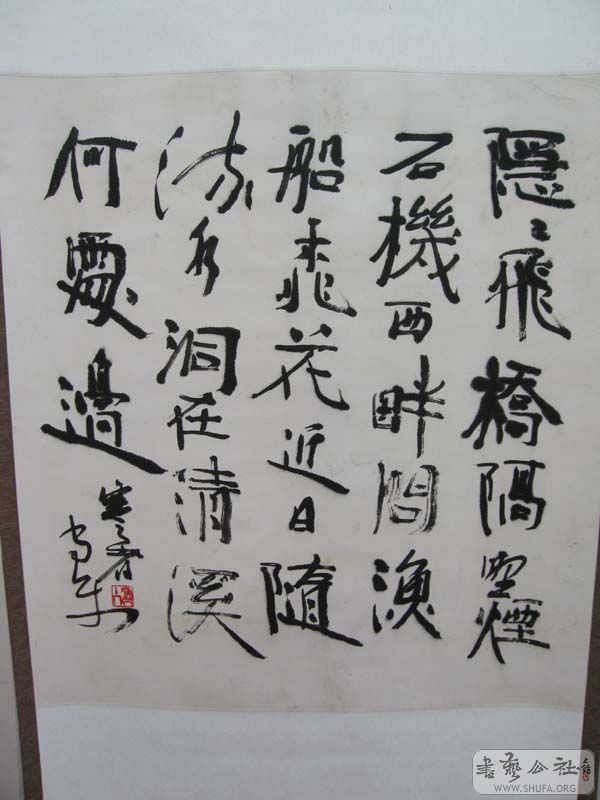 隱〻飛橋隔野煙
石機西畔問漁
船桃花近日隨
流水洞在清溪
何處邊
書藝公社
WWW.SHUFA.ORG